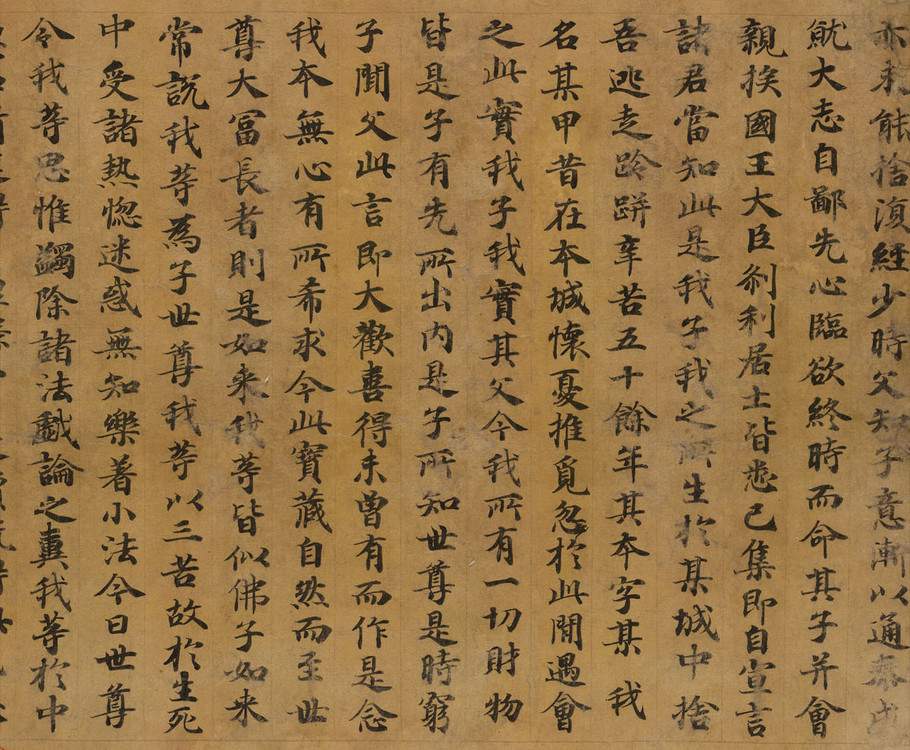 亦未能捨復經少時父知子意漸以通泰成
就大志自鄙先心臨欲終時而命其子并會
親族國王大臣剎利居士皆悉已集即自宣言
諸君當知此是我子我之所生於某城中捨
吾逃走跉跰辛苦五十餘年其本字某我
名某甲昔在本城懷憂推覓忽於此間遇會
之此實我子我實其父今我所有一切財物
皆是子有先所出內是子所知世尊是時窮
子聞父此言即大歡喜得未曾有而作是念
我本無心有所希求今此寶藏自然而至世
尊大富長者則是如來我等皆似佛子如來
常說我等為子世尊我等以三苦故於生死
中受諸熱惱迷惑無知樂著小法今日世尊
令我等思惟蠲除諸法戲論之糞我等於中